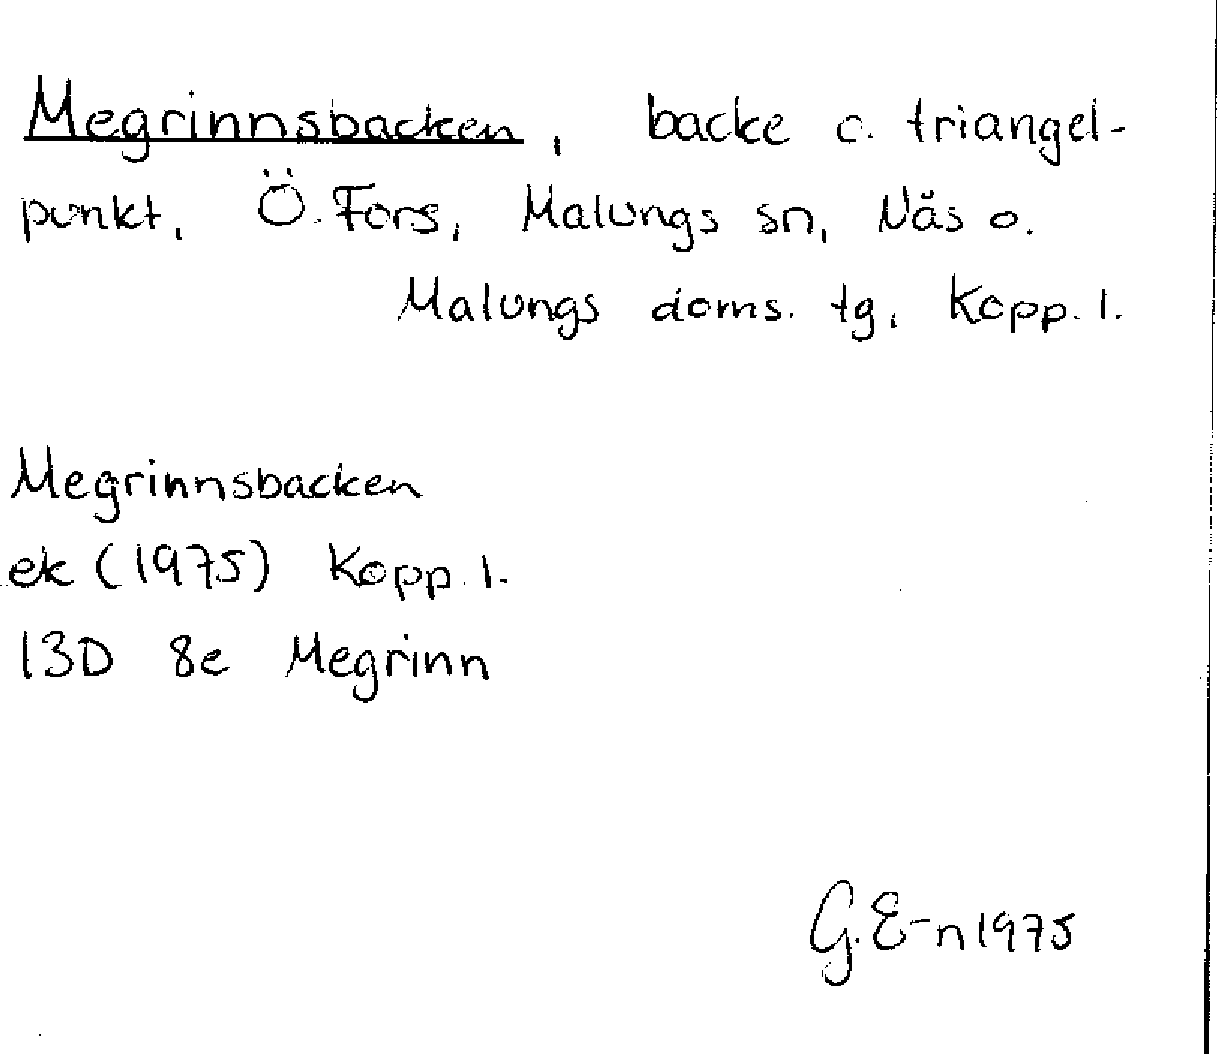 Megrinnsbacken, backe o. triangel-
punkt, Ö. Fors, Malungs sn, Näs o.
Malungs doms. tg, Kopp. l.
Megrinnsbacken
ek (1975) Kopp. l.
13D 8e Megrinn
G. E-n 1975